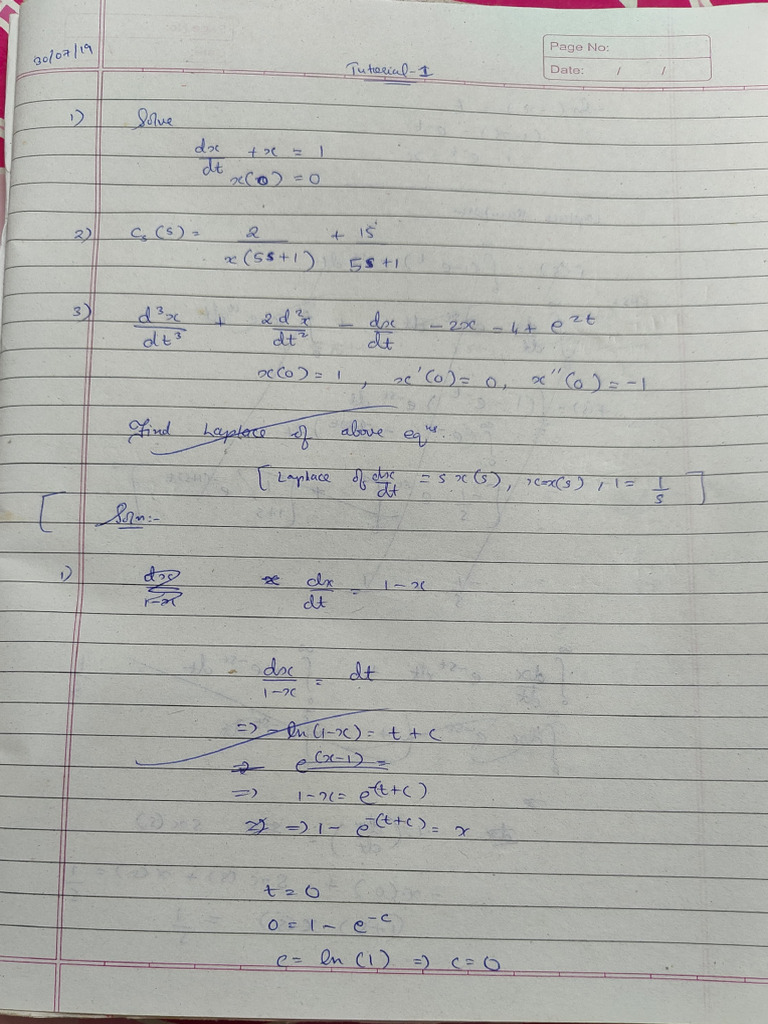 30/07/19
Page No:
Date: / /
Tutorial-1
1) Solve
dx/dt + x = 1
x(0) = 0
2) C₃(s) = 2/x(5s+1) + 15/5s+1
3) d³x/dt³ + 2d²x/dt² - dx/dt - 2x = 4 + e^2t
x(0) = 1, x'(0) = 0, x''(0) = -1
Find Laplace of above eqⁿˢ.
[Laplace of dx/dt = s x(s), x=x(s), 1 = 1/s]
[ Soln:-
1) dx/1-x dx/dt = 1-x
dx/1-x = dt
=> -ln(1-x) = t + c
=> e^(x-1) =
=> 1-x = e^-(t+c)
=> => 1 - e^-(t+c) = x
t = 0
0 = 1 - e^-c
c = ln(1) => c = 0